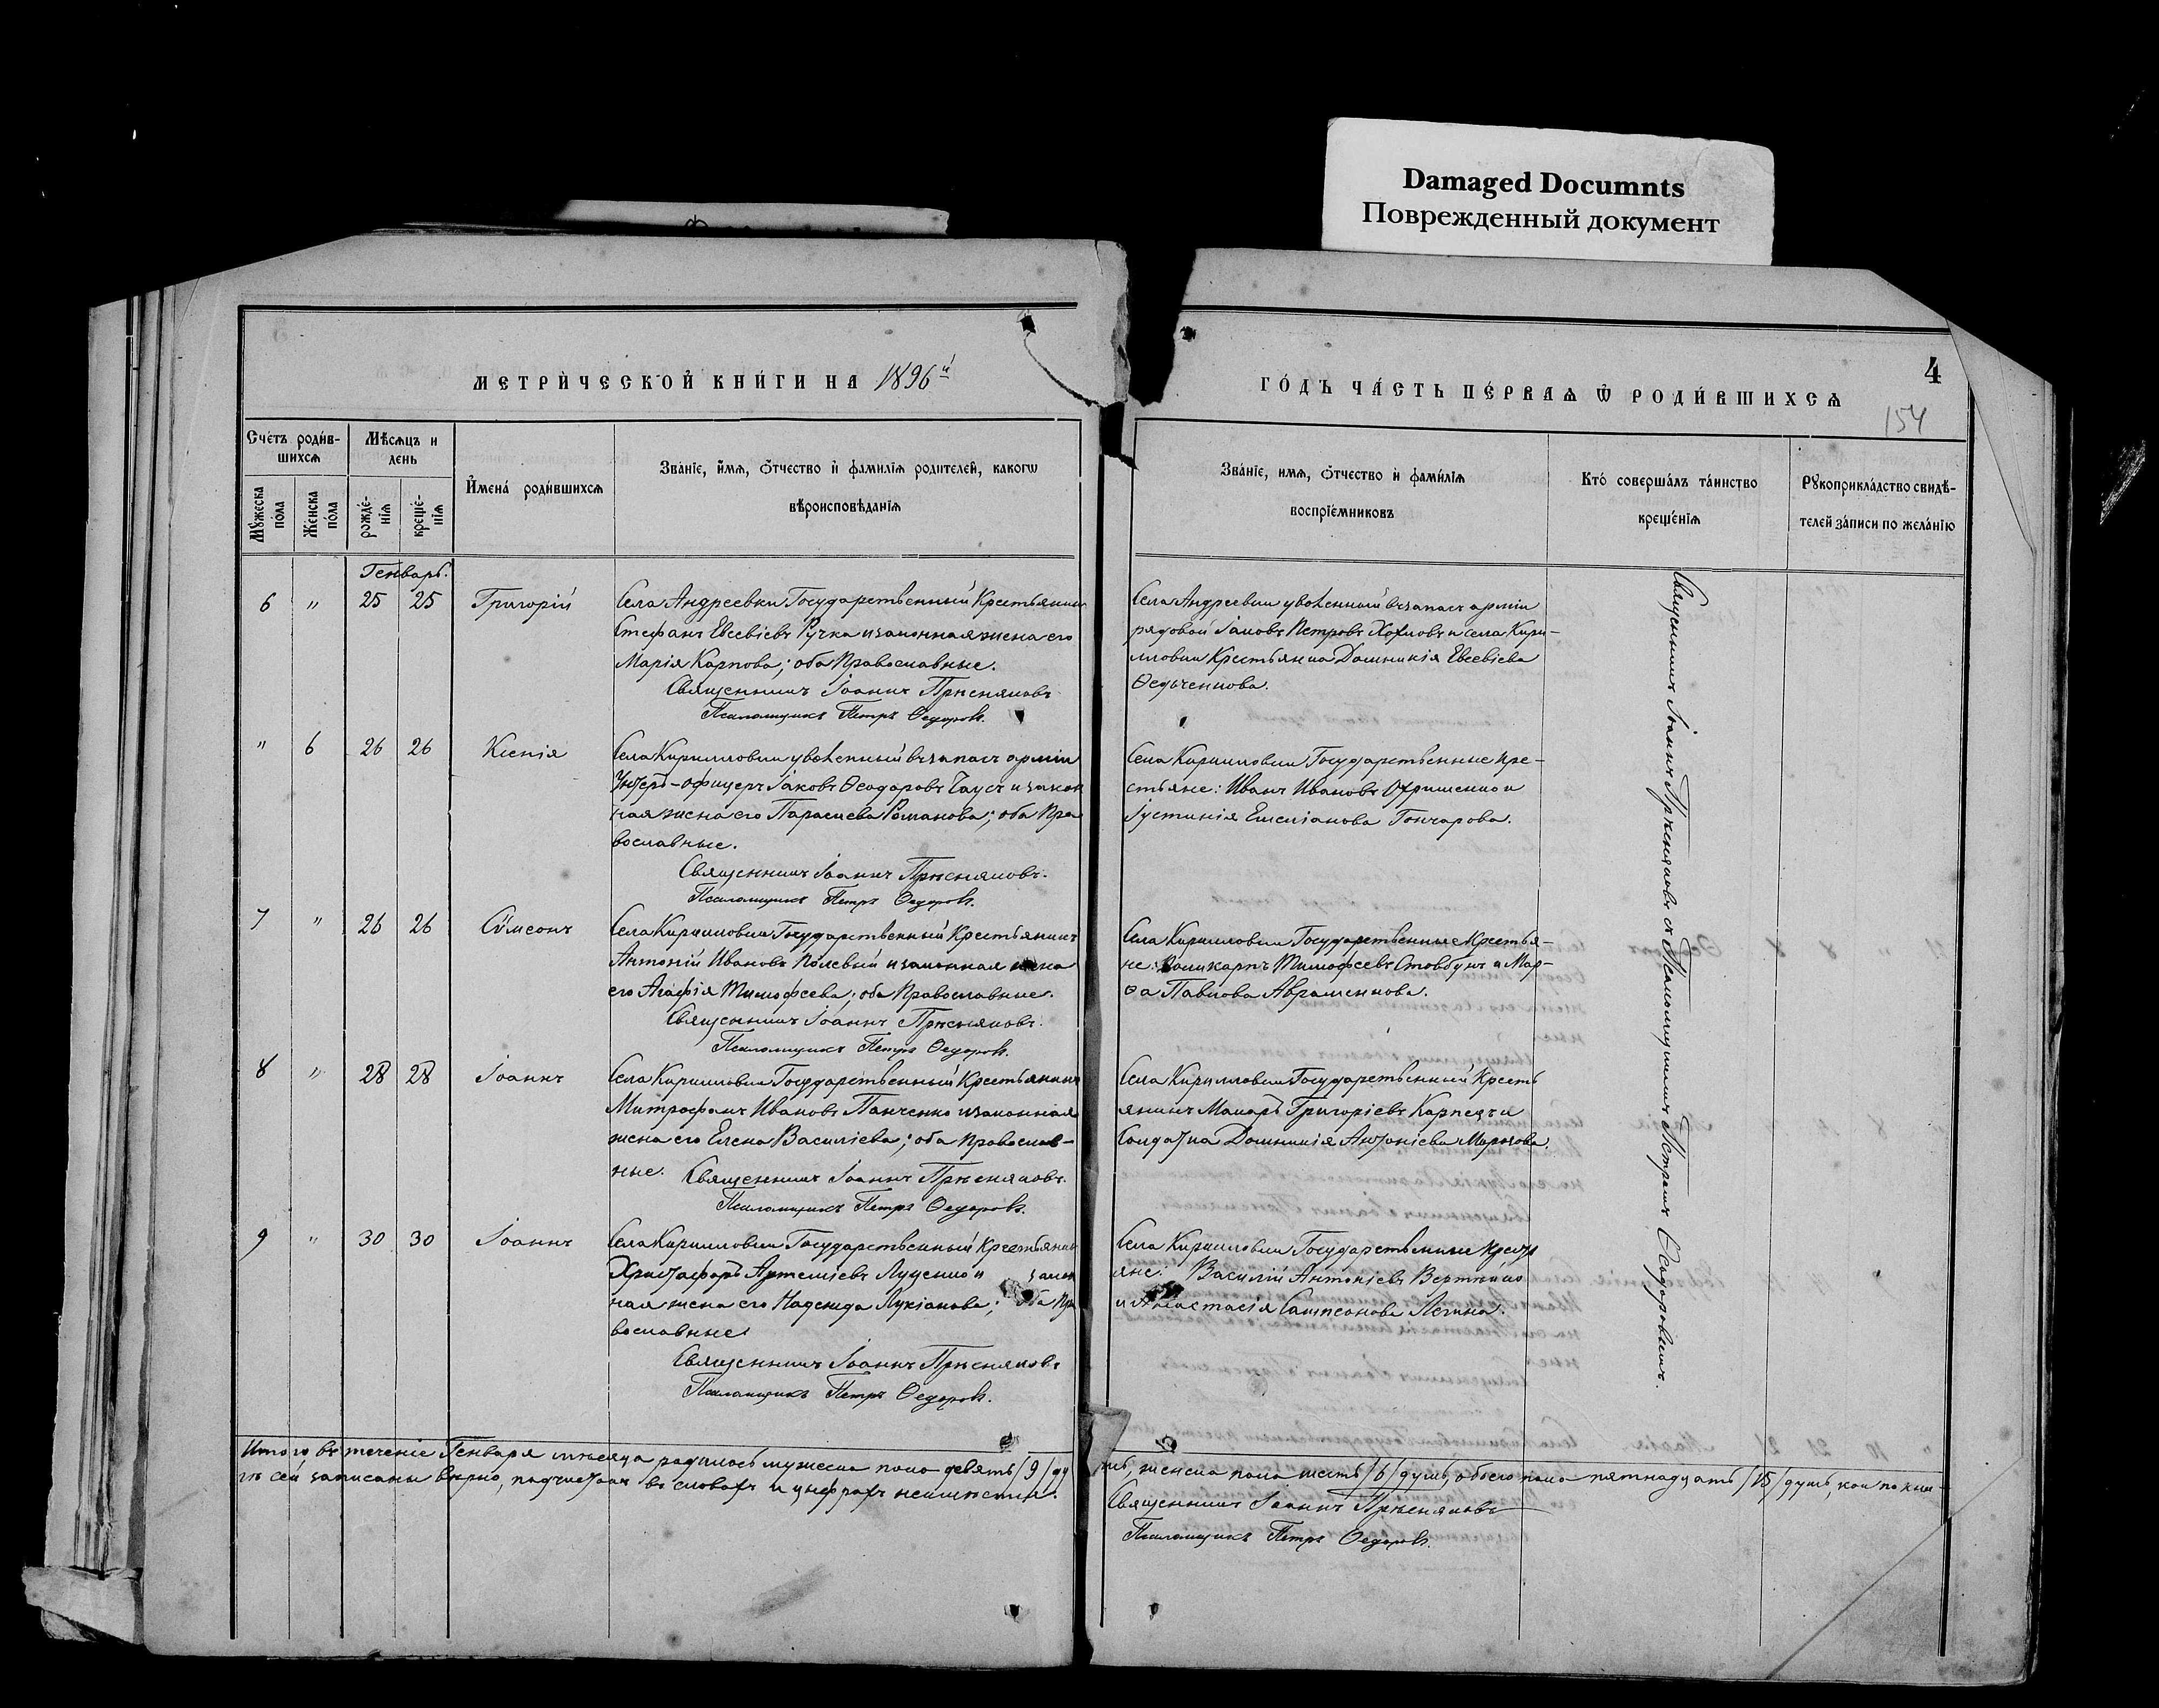 Damaged Documnts
Поврежденный документ
МЕТРИ́ЧЕСКОЙ КНИ́ГИ НА 1896й
ГО́ДЪ ЧА́СТЬ ПЕ́РВАѦ Ѿ РОДИ́ВШИХСѦ
4
154
Сче́тъ роди́в-
шихсѧ
Мѣ́сѧцъ и
день
Мꙋ́жеска
по́ла
Же́нска
по́ла
рожде́-
нїѧ
креще́-
нїѧ
И҆мена́ роди́вшихсѧ
Зва́нїе, и҆́мѧ, ѻ҆́тчество и҆ фами́лїѧ роди́телей, како́гѡ
вѣроисповѣ́данїѧ
Зва́нїе, имѧ, ѻ҆́тчество и҆ фами́лїѧ
воспрїе́мниковъ
Кто́ соверша́лъ та́инство
креще́нїѧ
Рꙋкоприкла́дство свидѣ́-
телей за́писи по жела́нїю
Генварь.
6 " 25 25 Григорій
Села Андреевки Государственный Крестьянинъ
Стефанъ Евсевіевъ Ручка и законная жена его
Марія Карпова; оба Православные.
Священникъ Іоаннъ Прѣсняковъ
Псаломщикъ Петръ Ѳедоровъ.
Села Андреевки уволенный въ запасъ арміи
рядовой Іаковъ Петровъ Хохловъ и села Кири-
лловки Крестьянка Домникія Евсевіева
Ѳедченкова.
" 6 26 26 Ксенія
Села Кирилловки уволенный въ запасъ арміи
Унтеръ-офицеръ Іаковъ Ѳеодоровъ Чаусъ и закон
ная жена его Параскева Романова; оба Пра
вославные.
Священникъ Іоаннъ Прѣсняковъ.
Псаломщикъ Петръ Ѳедоровъ.
Села Кирилловки Государственные кре-
стьяне: Иванъ Ивановъ Охрименко и
Іустинія Емеліанова Гончарова.
7 " 26 26 Сѵмеонъ
Села Кирилловки Государственный Крестьянинъ
Антоній Ивановъ Полевый и законная жена
его Агафія Тимофеева; оба Православные.
Священникъ Іоаннъ Прѣсняковъ.
Псаломщикъ Петръ Ѳедоровъ.
Села Кирилловки Государственные Крестья-
не: Поликарпъ Тимофеевъ Стовбунъ и Мар-
ѳа Павлова Авраменкова.
8 " 28 28 Іоаннъ
Села Кирилловки Государственный Крестьянинъ
Митрофанъ Ивановъ Панченко и законная
жена его Елена Василіева; оба Православ-
ные.
Священникъ Іоаннъ Прѣсняковъ.
Псаломщикъ Петръ Ѳедоровъ.
Села Кирилловки Государственный Кресть
янинъ Макаръ Григоріевъ Карпецъ и
Солдатка Домникія Антоніева Маркова.
9 " 30 30 Іоаннъ
Села Кирилловки Государственный Крестьянинъ
Христофоръ Артеміевъ Луценко и закон
ная жена его Надежда Лукіанова; оба Пра
вославные.
Священникъ Іоаннъ Прѣсняковъ
Псаломщикъ Петръ Ѳедоровъ.
Села Кирилловки Государственные Крестья
яне: Василій Антоніевъ
и Анастасія Сампсонова Легина.
Священникъ Іоаннъ Прѣсняковъ съ Псаломщикомъ Петромъ Ѳеодоровымъ.
Итого въ теченіе Генваря мѣсяца родилось мужеска пола девять /9/ ду
шъ, женска пола шесть /6/ душъ, обоего пола пятнадцать /15/ душъ, кои по кни-
гѣ сей записаны вѣрно, подчистокъ въ словахъ и цифрахъ неимѣется.
Священникъ Іоаннъ Прѣсняковъ
Псаломщикъ Петръ Ѳедоровъ.